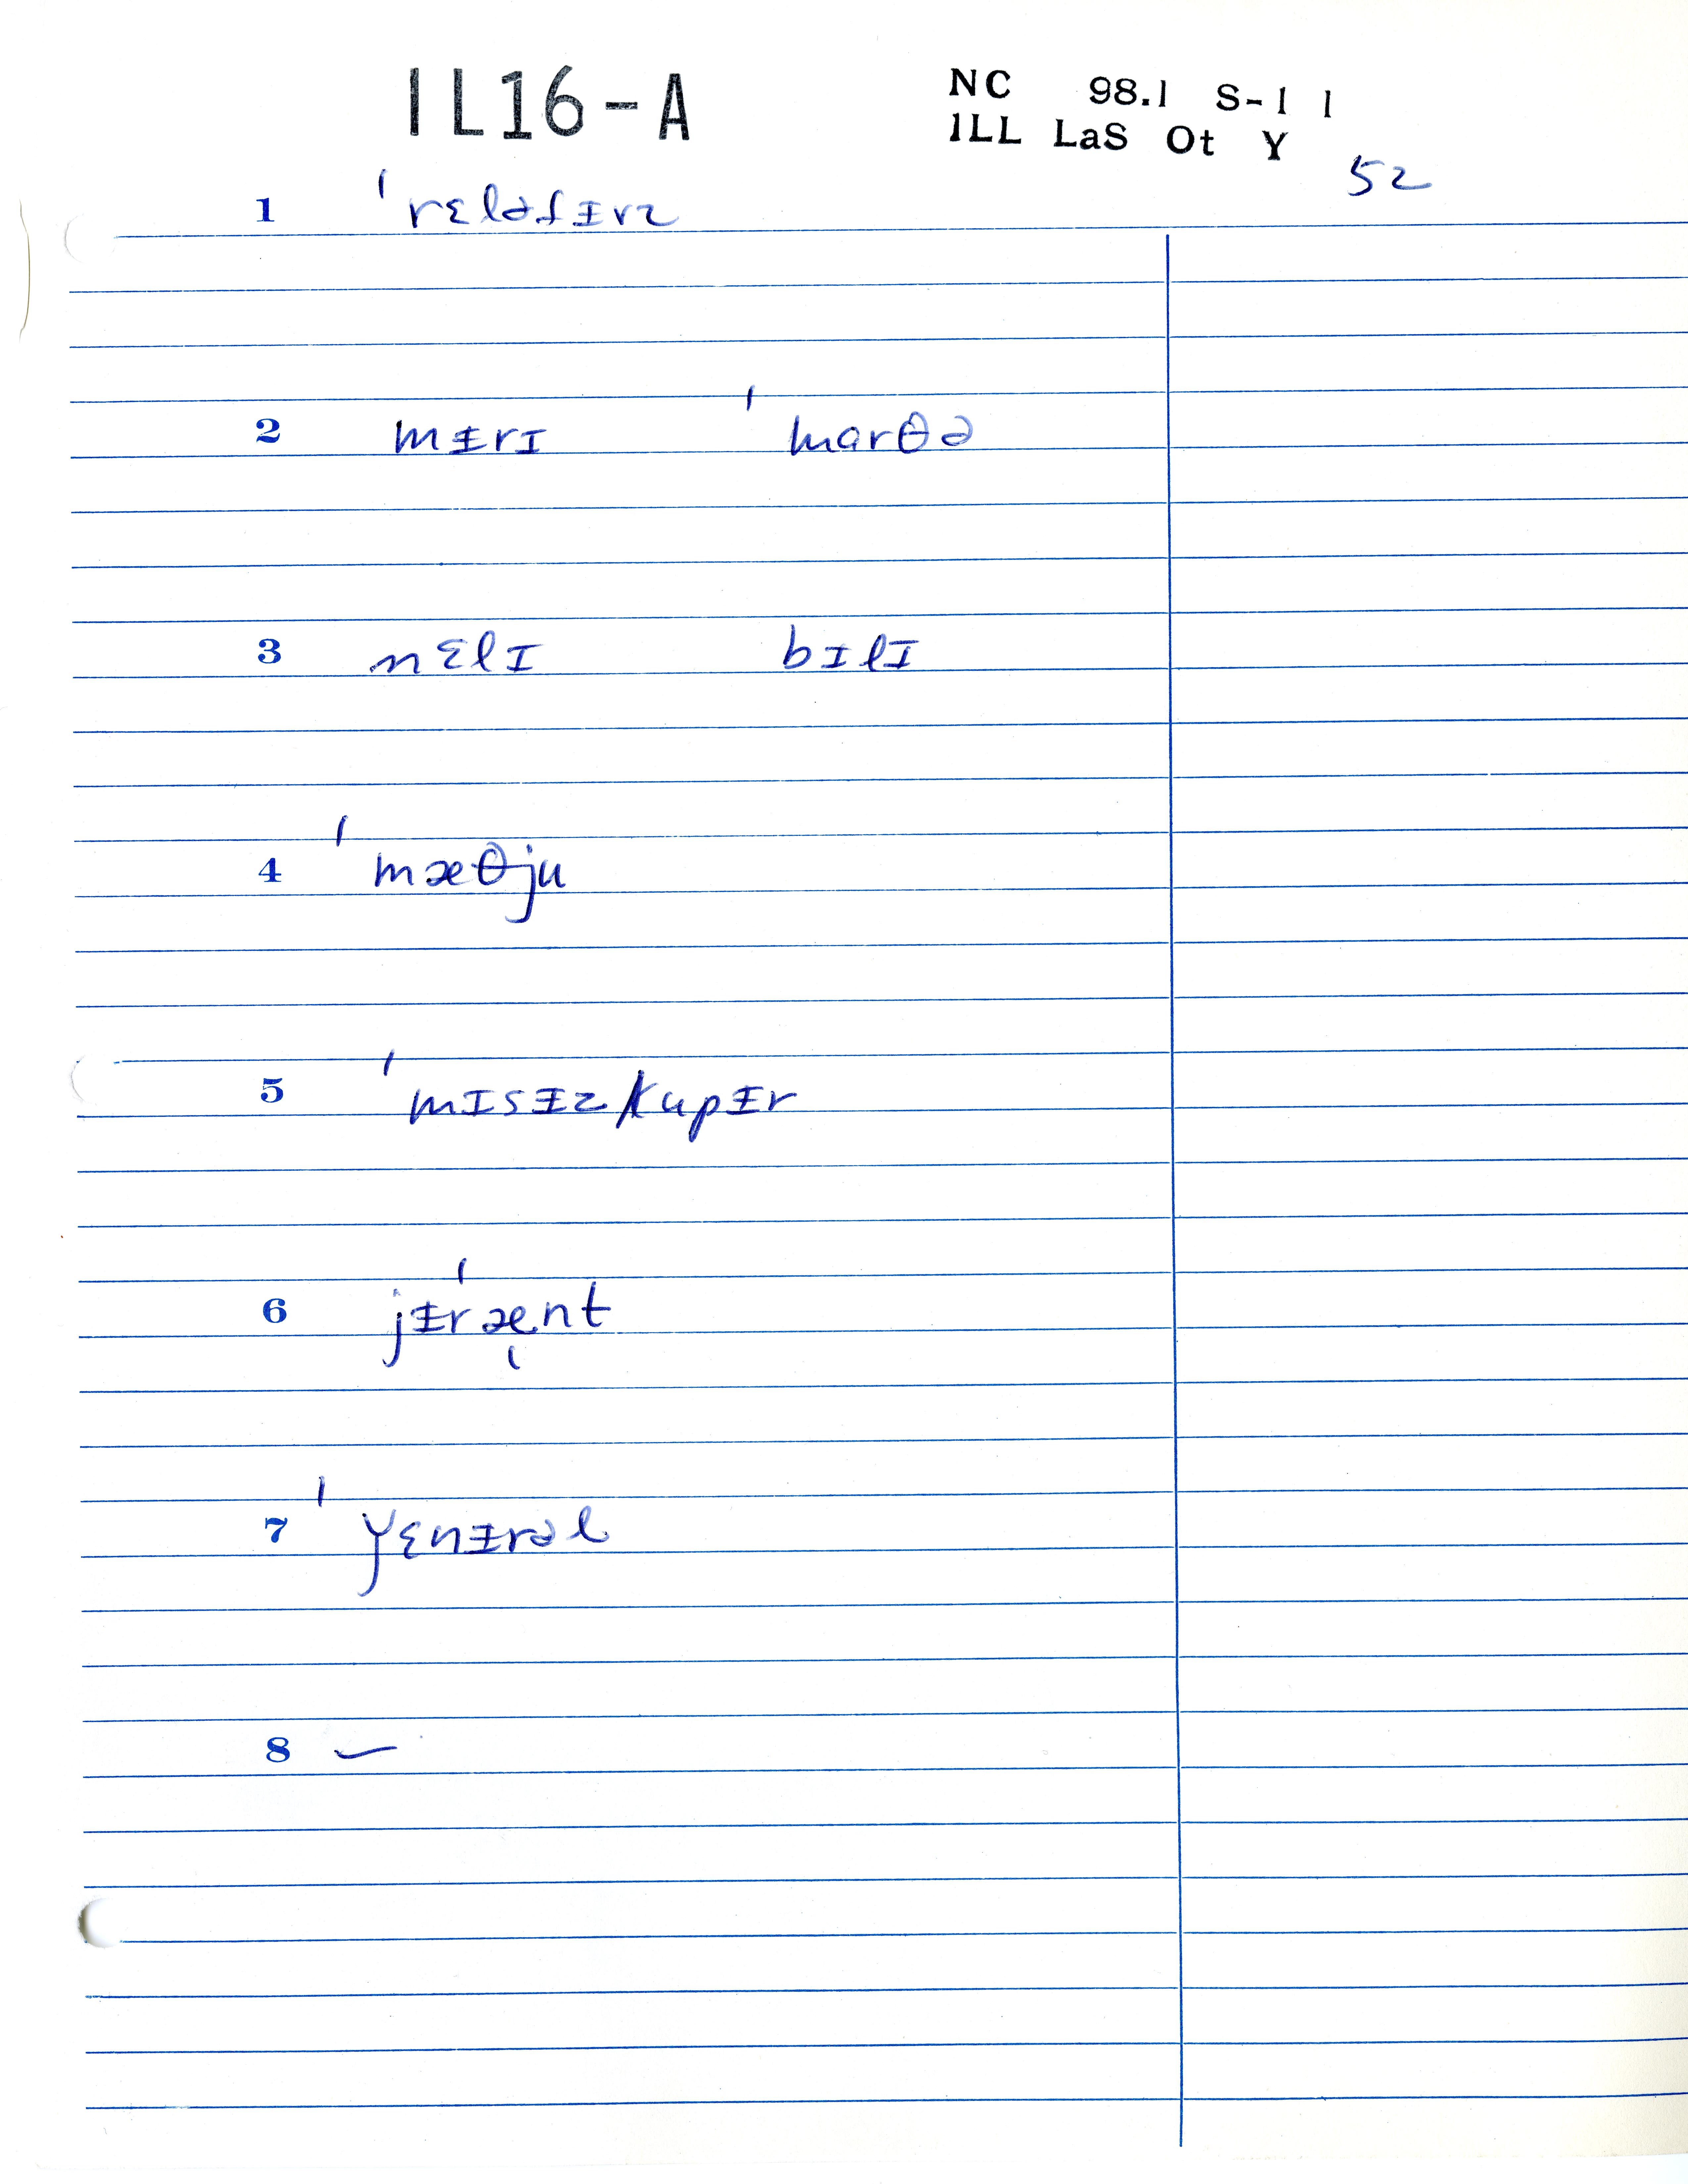 IL16-A
NC 98.1 S-1 1
ILL LaS Ot Y
52
1 ˈrɛləfᵻrz
2 mᵻrɪ ˈmɑrθə
3 nɛlɪ bɪlɪ
4 ˈmæθju
5 ˈmɪsᵻz/kupᵻr
6 jᵻrˈænt
7 ˈɣɛnᵻrəl
8 ✓